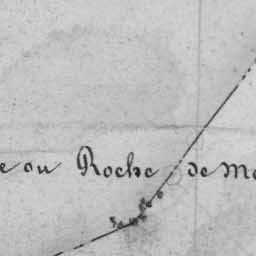 e ou Roche de Mo